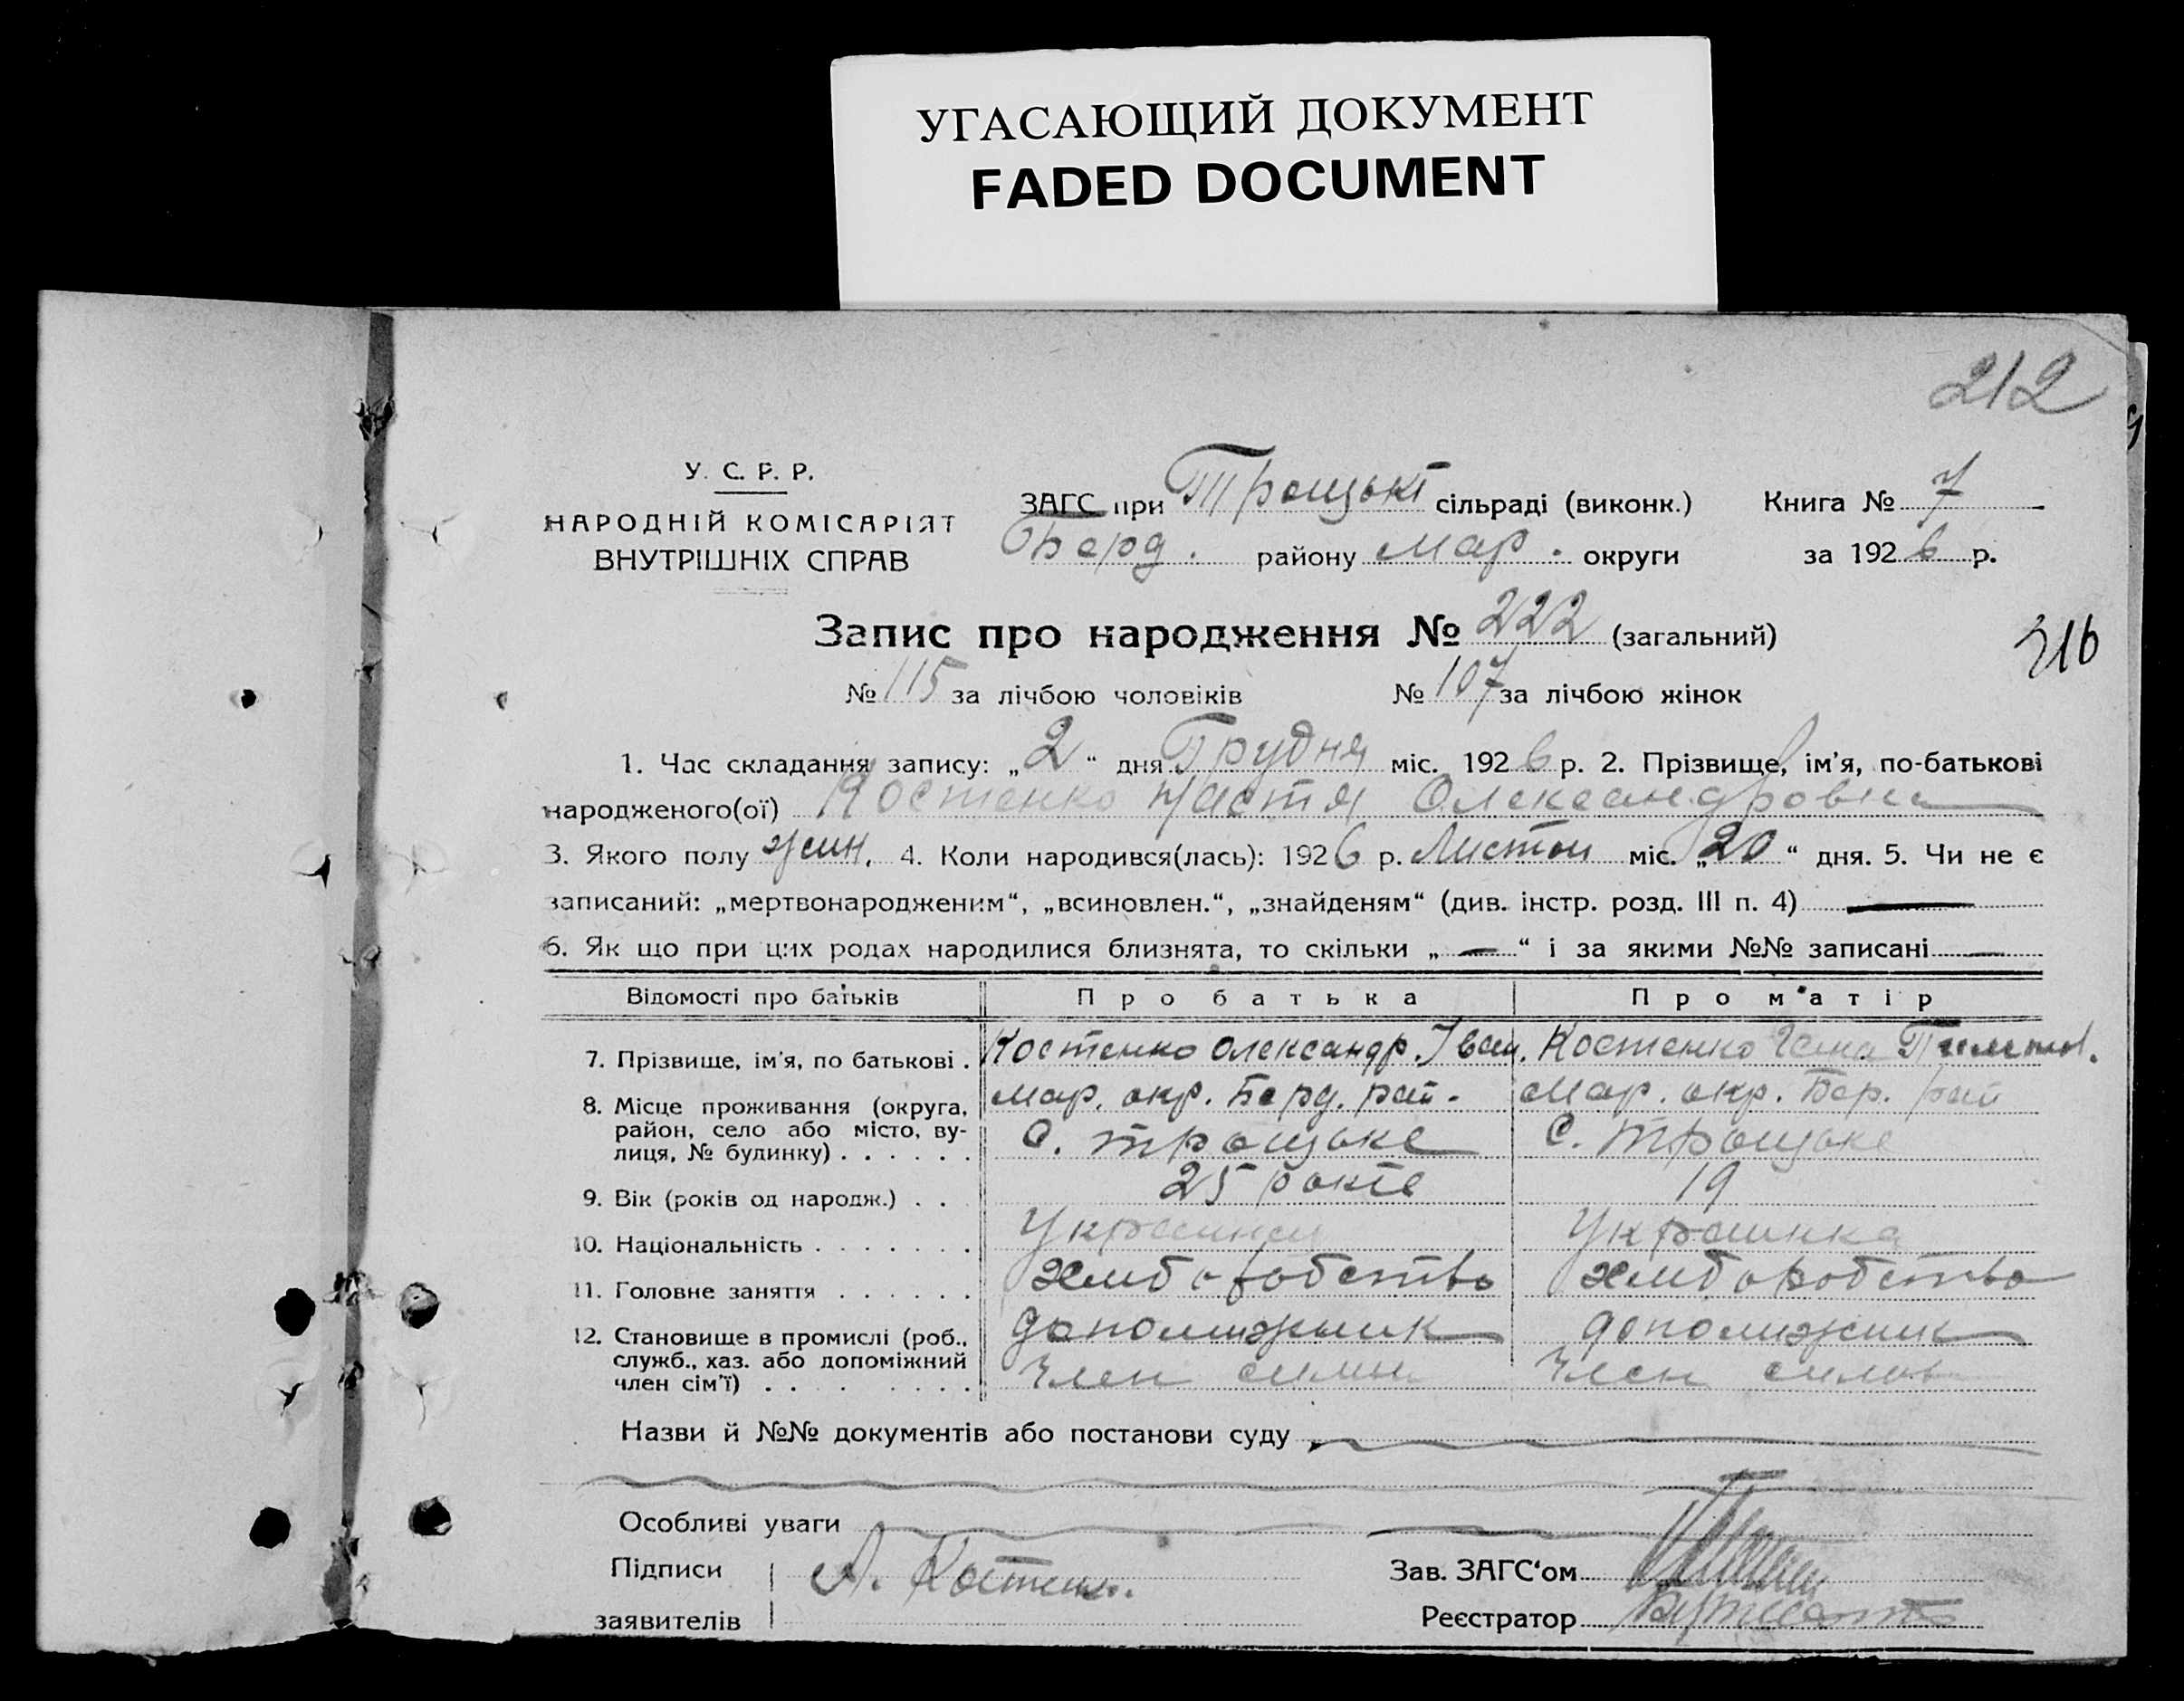 УГАСАЮЩИЙ ДОКУМЕНТ
FADED DOCUMENT
212
У. С. Р. Р.
НАРОДНІЙ КОМІСАРІЯТ
ВНУТРІШНІХ СПРАВ
ЗАГС при Троцькі сільраді (виконк.) Книга № 7
Берд. району Мар. округи за 1926 р.
Запис про народження № 222 (загальний)
316
№ 115 за лічбою чоловіків № 107 за лічбою жінок
1. Час складання запису: „2“ дня Грудня міс. 1926 р. 2. Прізвище, ім'я, по-батькові
народженого(ої) Костенко Настя Олександровна
3. Якого полу жин. 4. Коли народився(лась): 1926 р. Листоп міс. „20“ дня. 5. Чи не є
записаний: „мертвонародженим“, „всиновлен.“, „знайденям“ (див. інстр. розд. III п. 4) —
6. Як що при цих родах народилися близнята, то скільки „—“ і за якими №№ записані —
Відомості про батьків Про батька Про матір
7. Прізвище, ім'я, по батькові . Костенко Олександр. Іван. Костенко
8. Місце проживання (округа, Мар. окр. Берд. рай. Мар. окр. Бер. рай
район, село або місто, ву-
лиця, № будинку) . . . . . . С. Троцьке С. Троцьке
9. Вік (років од народж.) . . 25 років 19
10. Національність . . . . . . . Украинец Украинка
11. Головне заняття . . . . . . Хлиборобство Хлиборобство
12. Становище в промислі (роб., допомижник допомижник
служб., хаз. або допоміжний
член сім'ї) . . . . . . . . член симьи член
Назви й №№ документів або постанови суду
Особливі уваги
Підписи А. Костенко Зав. ЗАГС'ом
заявителів Реєстратор